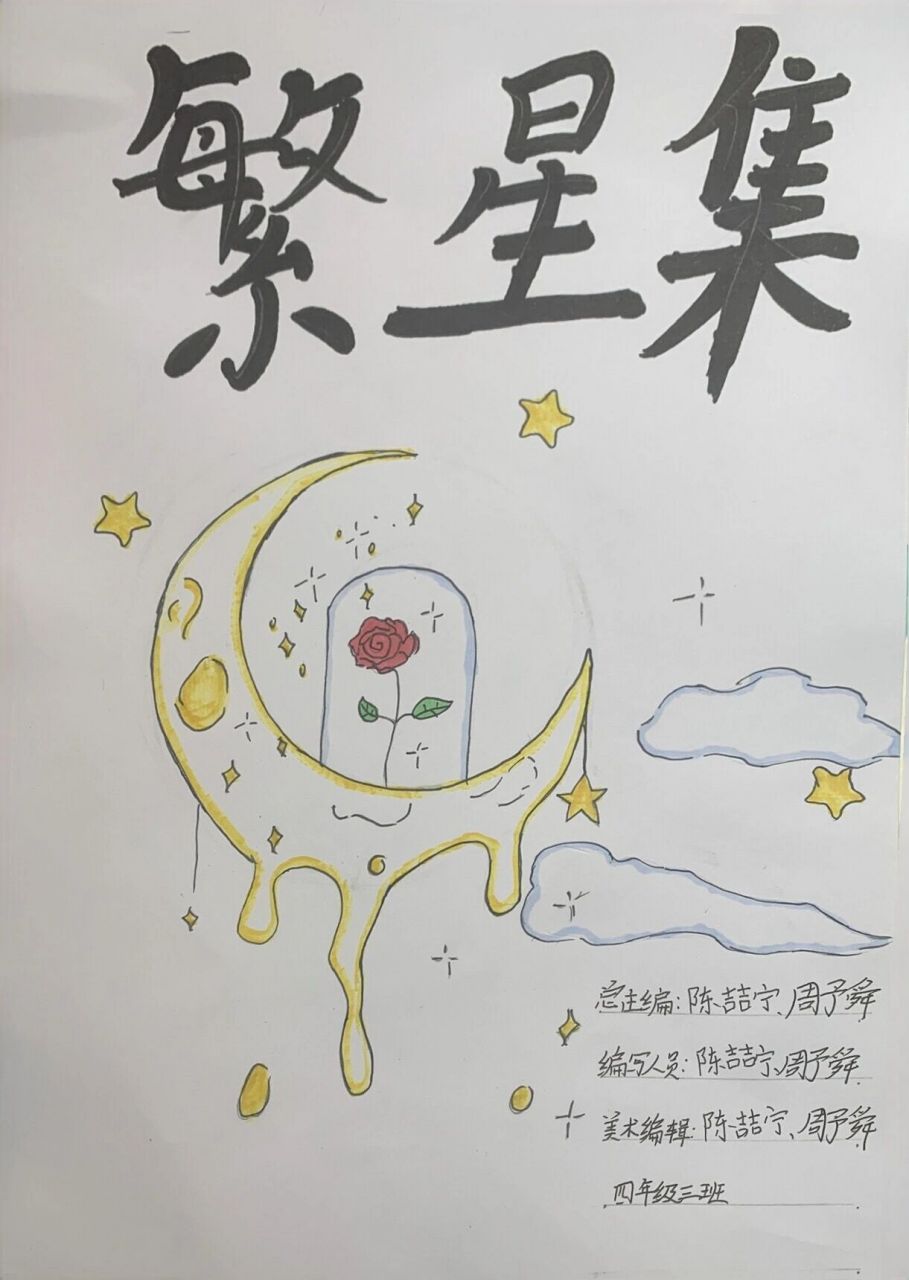 繁星集
总主编:陈喆宁、周予舜
编写人员:陈喆宁、周予舜
美术编辑:陈喆宁、周予舜
四年级三班